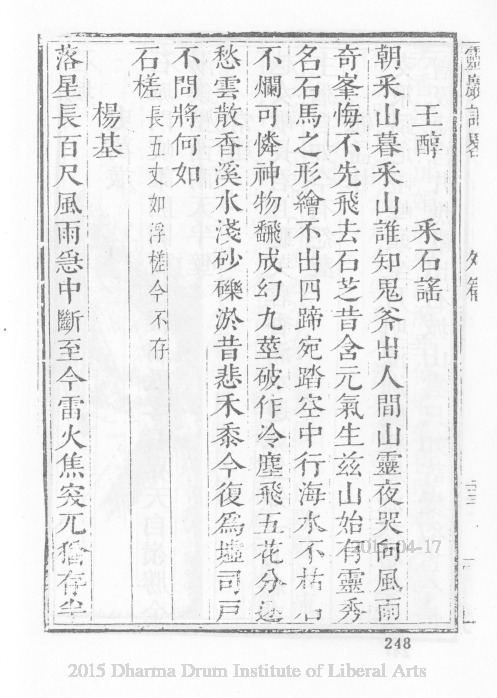 靈巖記略
外篇
王醇 采石謠
朝采山暮采山誰知鬼斧出人間山靈夜哭向風雨
奇峯悔不先飛去石芝昔含元氣生茲山始有靈秀
名石馬之形繪不出四蹄宛踏空中行海水不枯石
不爛可憐神物飜成幻九莖破作冷塵飛五花分逐
愁雲散香溪水淺砂礫淤昔悲禾黍今復爲墟司戸
不問將何如
石槎長五丈如浮槎今不存
楊基
落星長百尺風雨急中斷至今雷火焦突兀猶存半
2015-04-17
248
2015 Dharma Drum Institute of Liberal Arts